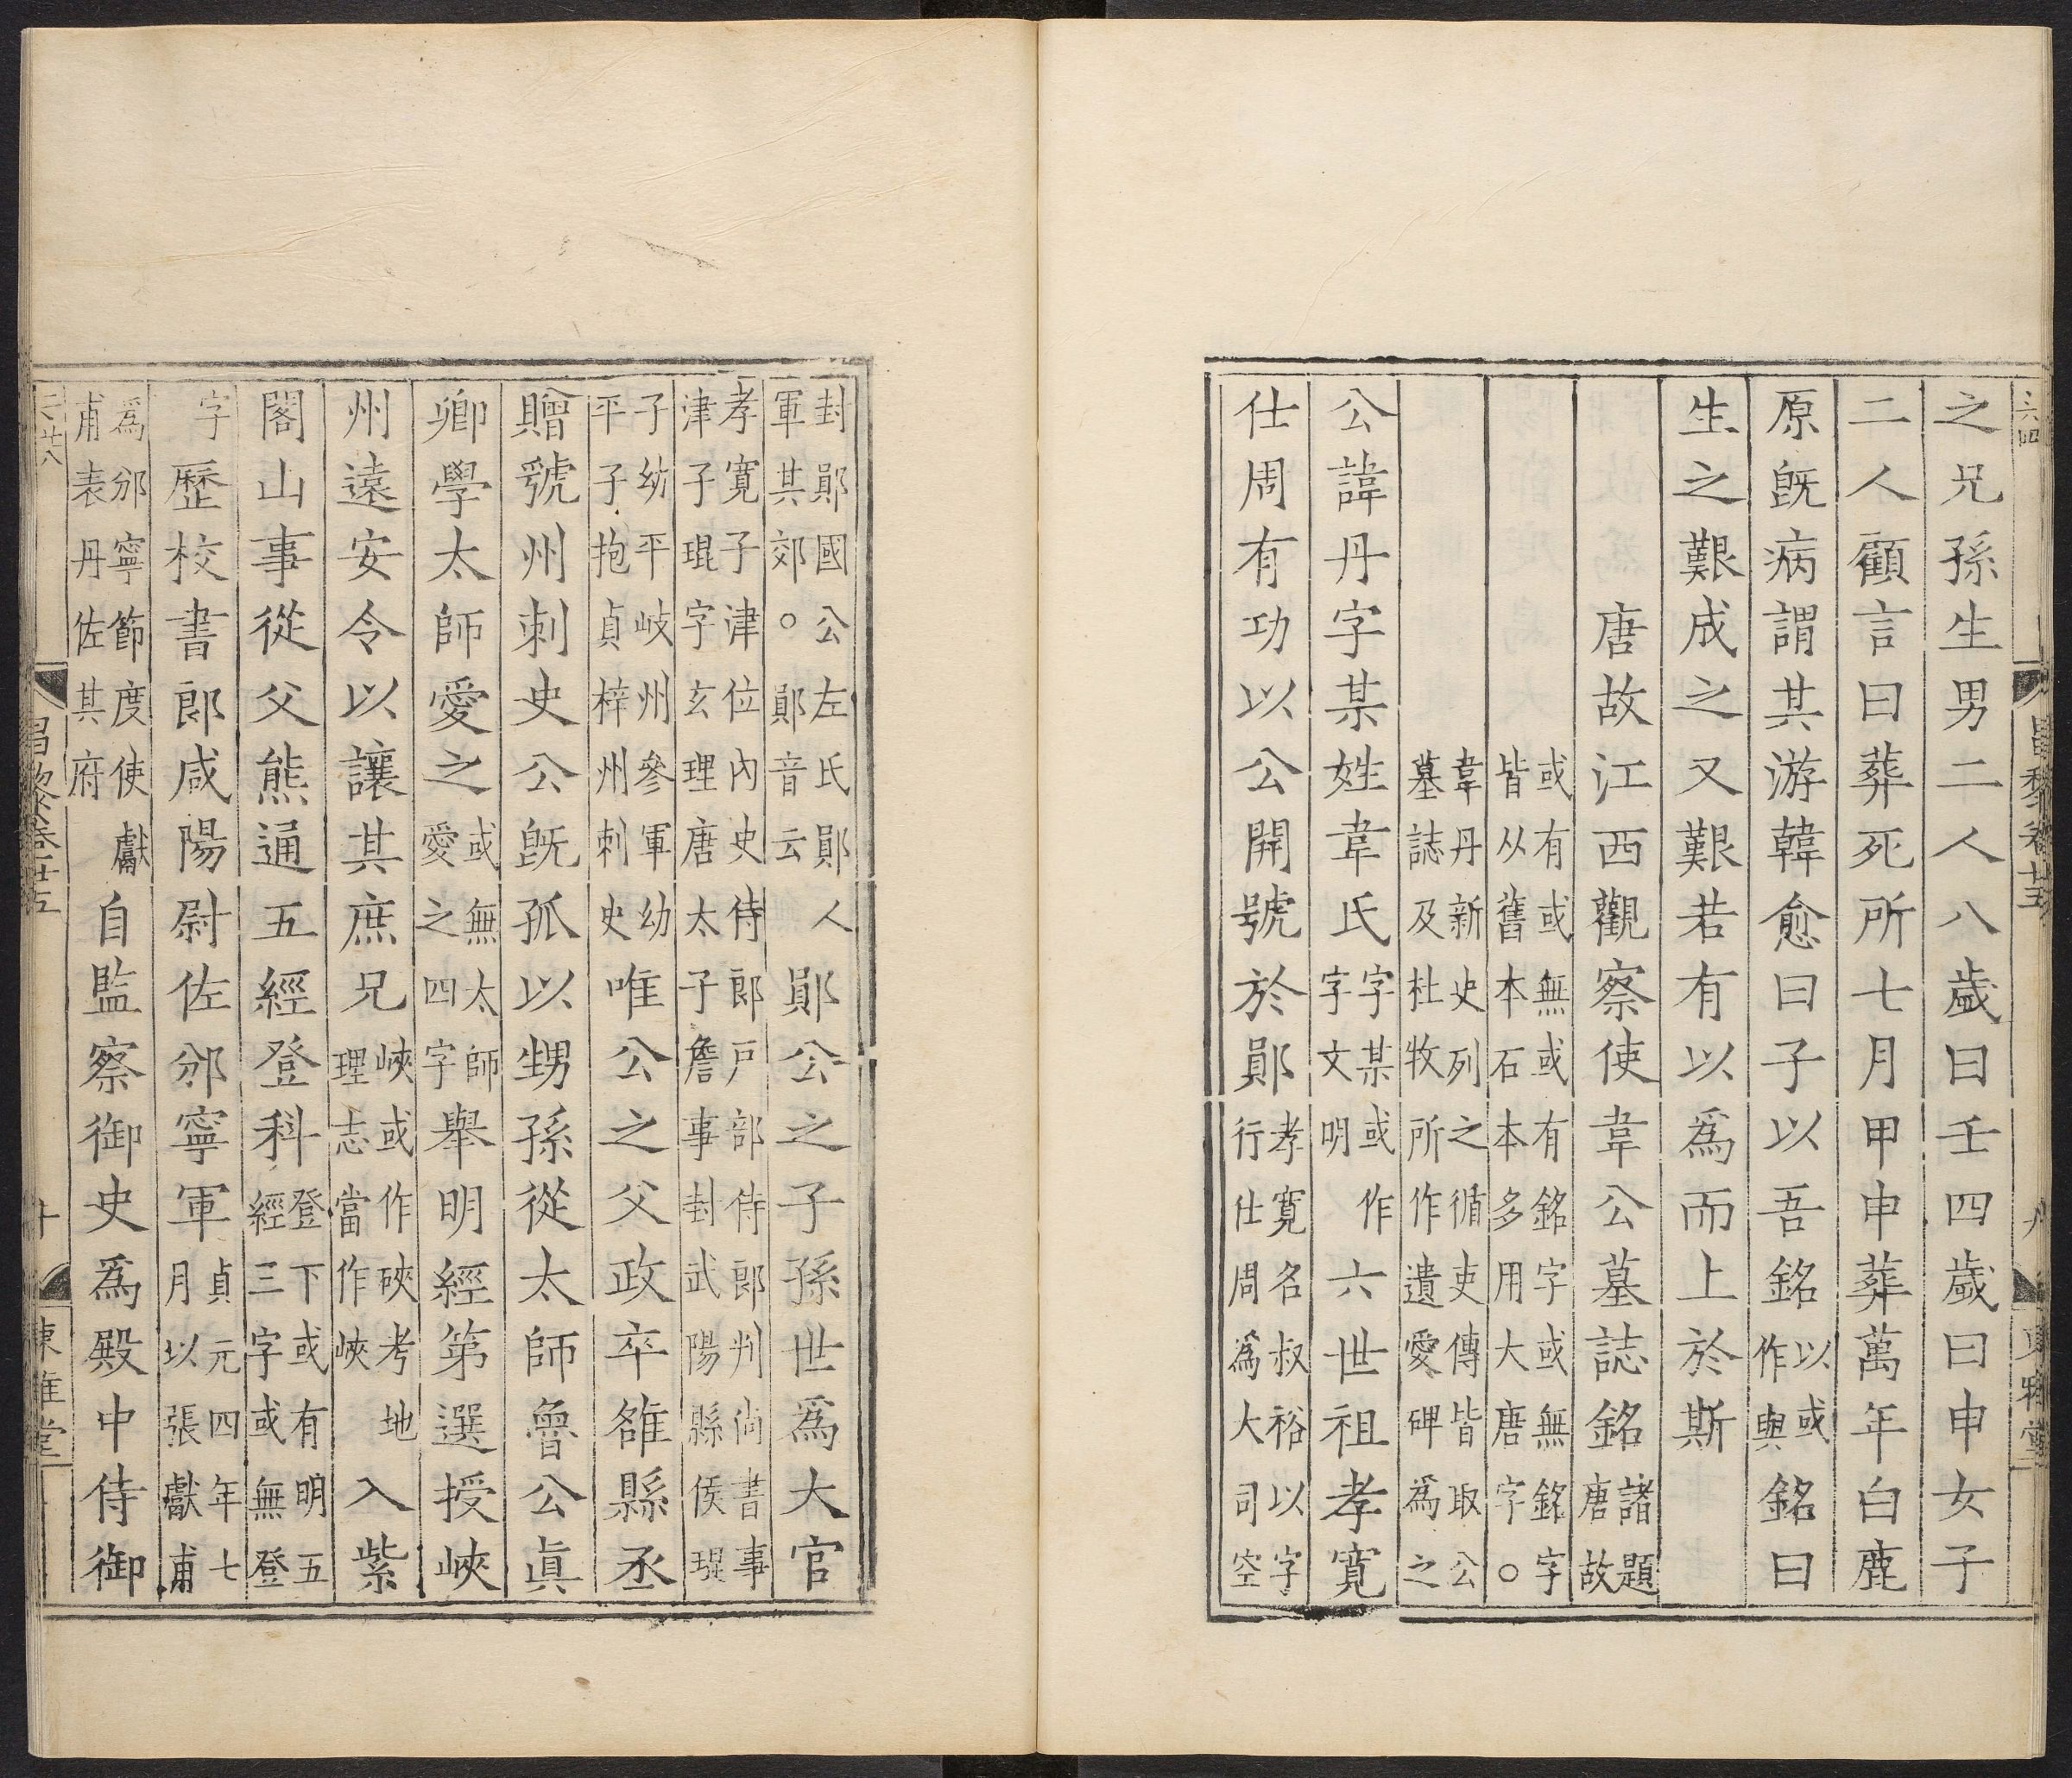 六四 昌黎卷廿五 九 東雅堂
之兄孫生男二人八歲曰壬四歲曰申女子
二人顧言曰葬死所七月甲申葬萬年白鹿
原旣病謂其游韓愈曰子以吾銘以或作與銘曰
生之艱成之又艱若有以爲而上於斯
唐故江西觀察使韋公墓誌銘諸題唐故
或有或無或有銘字或無銘字
皆从舊本石本多用大唐字○
韋丹新史列之循吏傳皆取公
墓誌及杜牧所作遺愛碑爲之
公諱丹字某姓韋氏字某或作字文明六世祖孝寬
仕周有功以公開號於鄖孝寬名叔裕以字行仕周爲大司空
封鄖國公左氏鄖人軍其郊○鄖音云鄖公之子孫世爲大官
孝寬子津位內史侍郎戶部侍郎判尚書事
津子琨字玄理唐太子詹事封武陽縣侯琨
子幼平岐州參軍幼平子抱貞梓州刺史唯公之父政卒雒縣丞
贈虢州刺史公旣孤以甥孫從太師魯公眞
卿學太師愛之或無太師愛之四字舉明經第選授峽
州遠安令以讓其庶兄峽或作硤考地理志當作峽入紫
閣山事從父熊通五經登科登下或有明五經三字或無登
字歷校書郎咸陽尉佐邠寧軍貞元四年七月以張獻甫
爲邠寧節度使獻甫表丹佐其府自監察御史爲殿中侍御
昌黎卷廿五 十 東雅堂